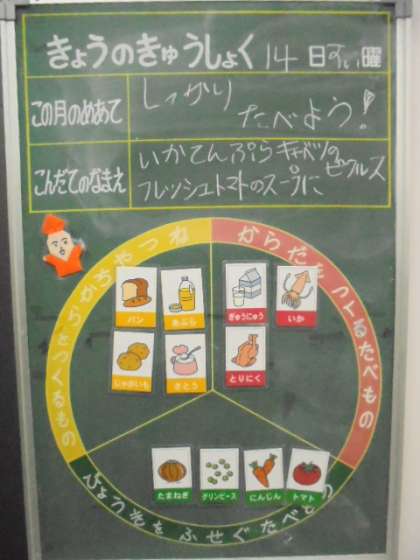 きょうのきゅうしょく 14日すい曜
この月のめあて
しっかり
たべよう!
こんだてのなまえ
いかてんぷら キャベツのピクルス
フレッシュトマトのスープに
ねつやちからをつくるもの
からだをつくるたべもの
パン
あぶら
ぎゅうにゅう
いか
じゃがいも
さとう
とりにく
たまねぎ
グリンピース
にんじん
トマト
びょうきをふせぐたべもの